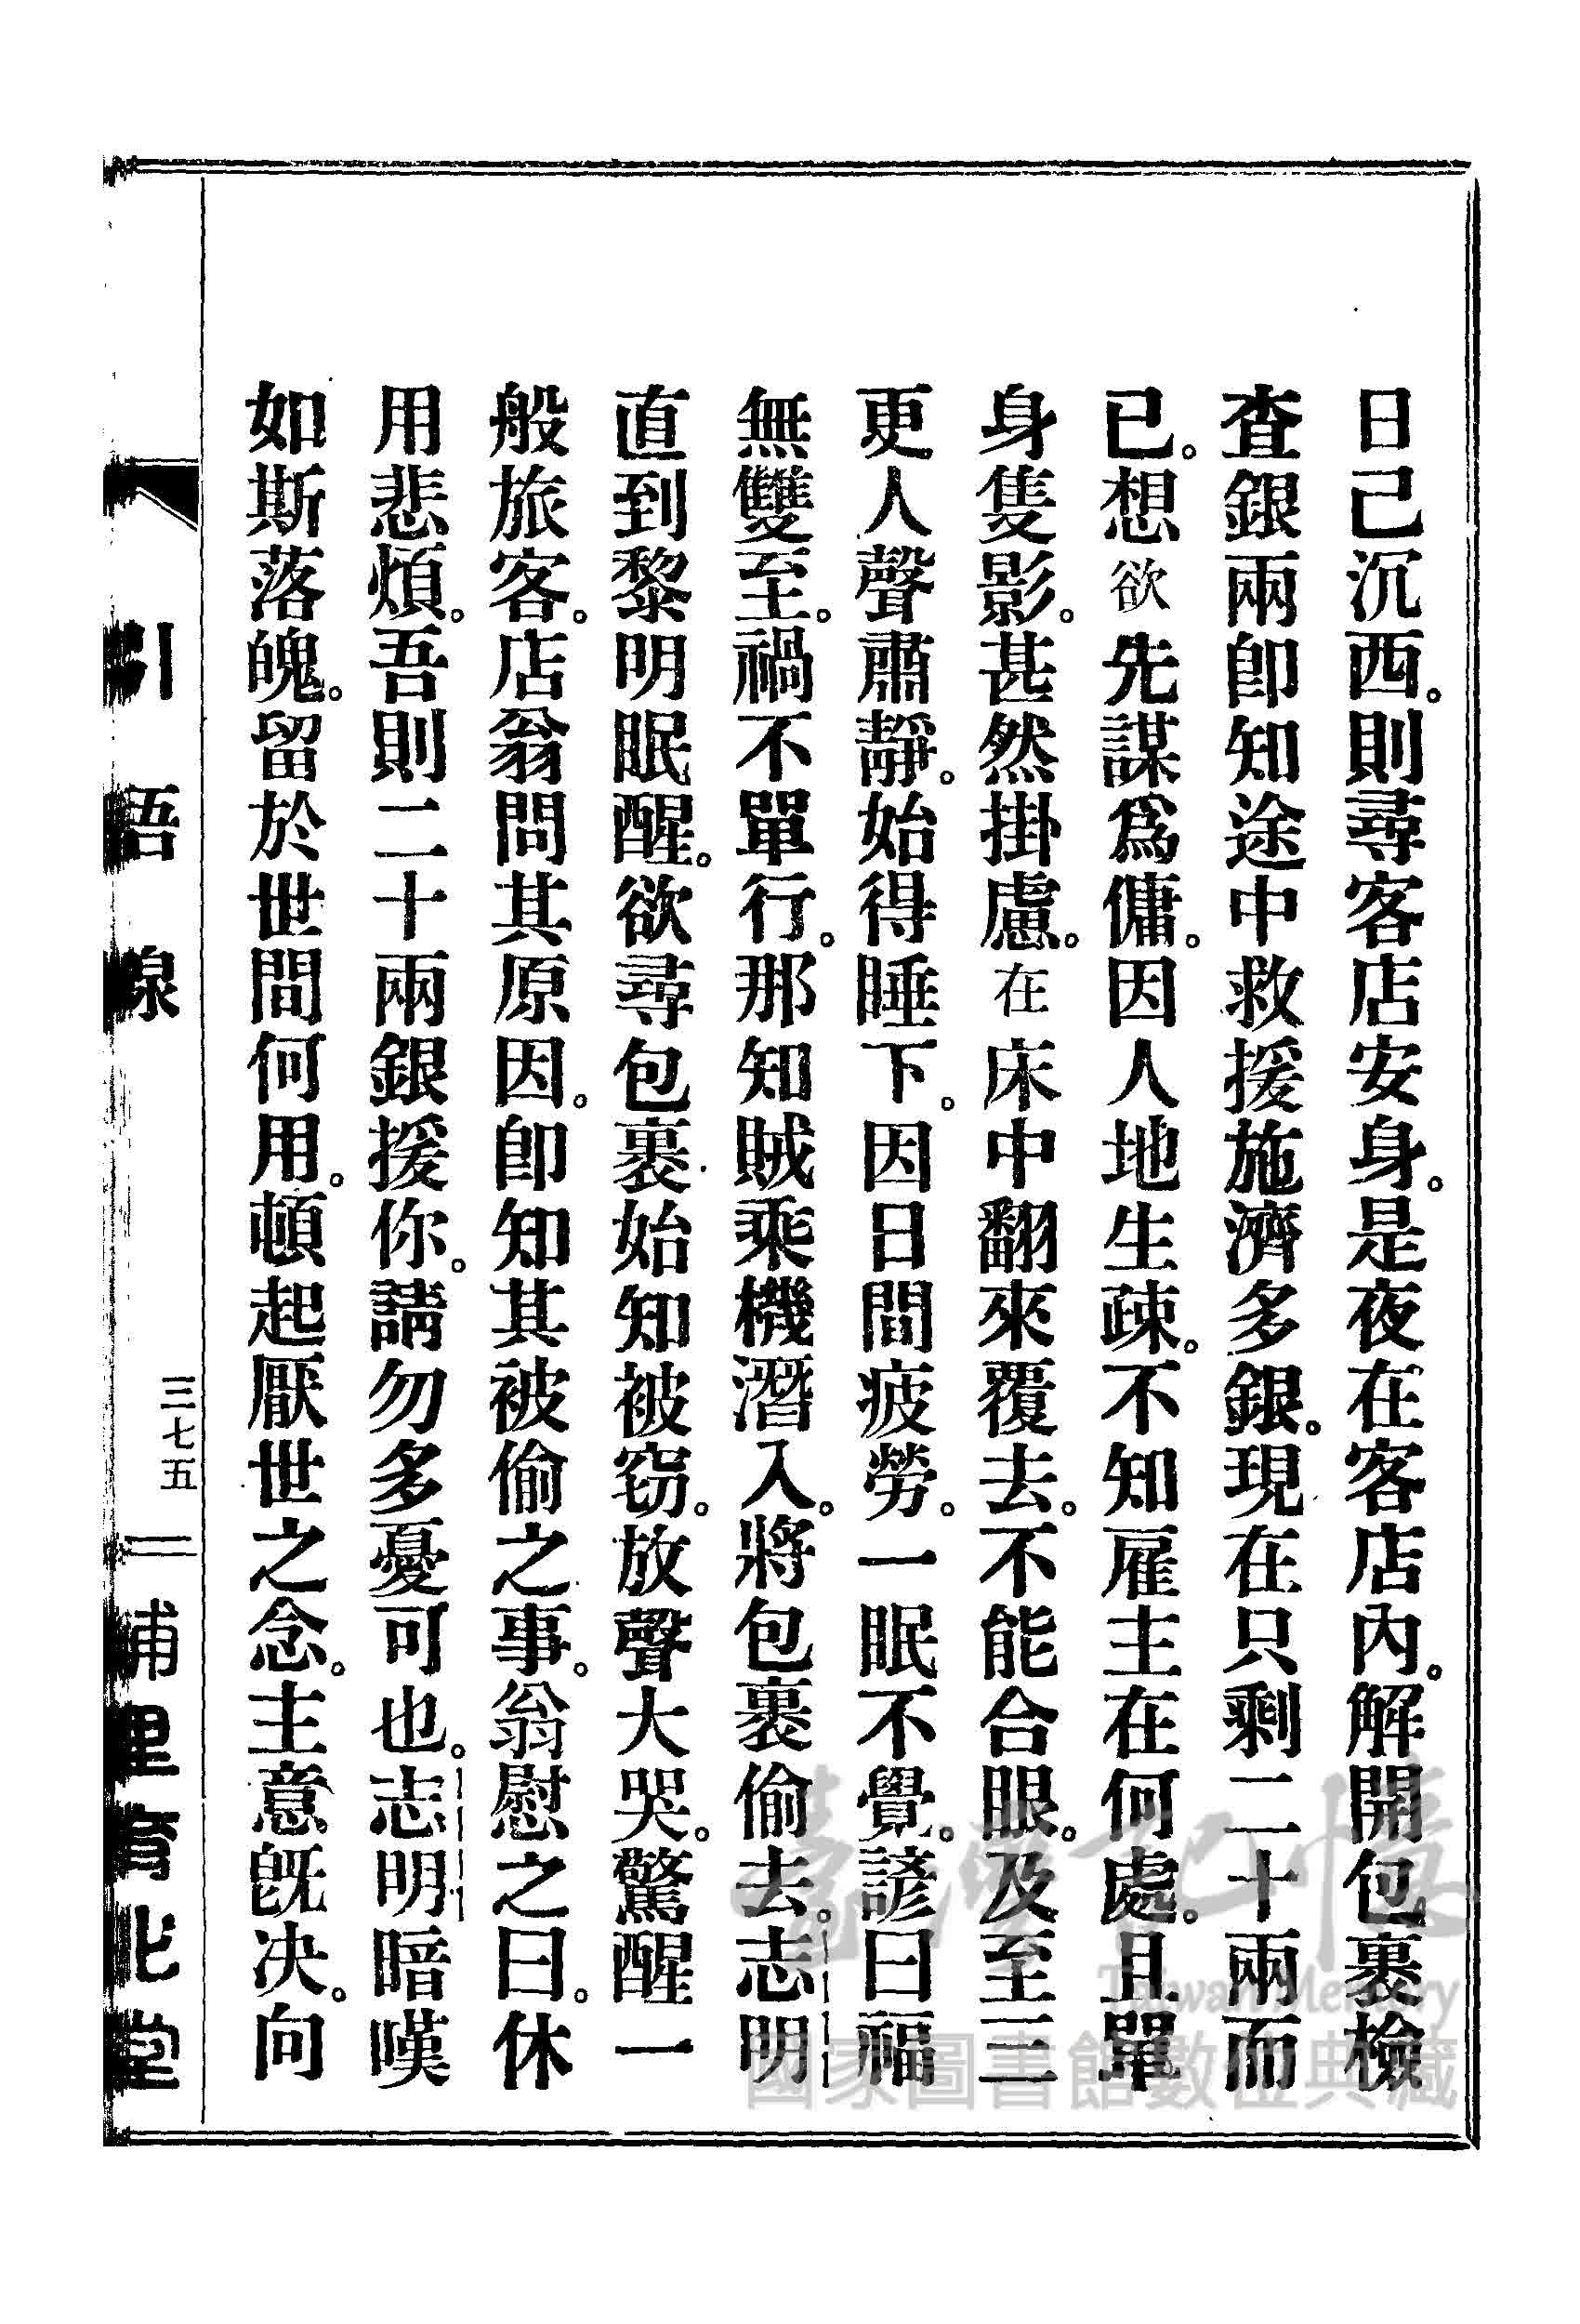 日己沉西。則尋客店安身。是夜在客店內。解開包裹檢
查銀兩卽知途中救援施濟多銀。現在只剩二十兩而
已。想欲先謀爲傭。因人地生疎。不知雇主在何處。且單
身隻影。甚然掛慮。在床中翻來覆去。不能合眼。及至三
更人聲肅靜。始得睡下。因日間疲勞。一眠不覺。諺曰福
無雙至。禍不單行。那知賊乘機潛入。將包裹偷去。志明
直到黎明眠醒。欲尋包裹始知被窃。放聲大哭。驚醒一
般旅客。店翁問其原因。卽知其被偷之事。翁慰之曰。休
用悲煩。吾則二十兩銀援你。請勿多憂可也。志明暗嘆
如斯落魄。留於世間何用。頓起厭世之念。主意旣決。向
引悟線
三七五
埔里育化堂
臺灣記憶
Taiwan Memory
國家圖書館數位典藏